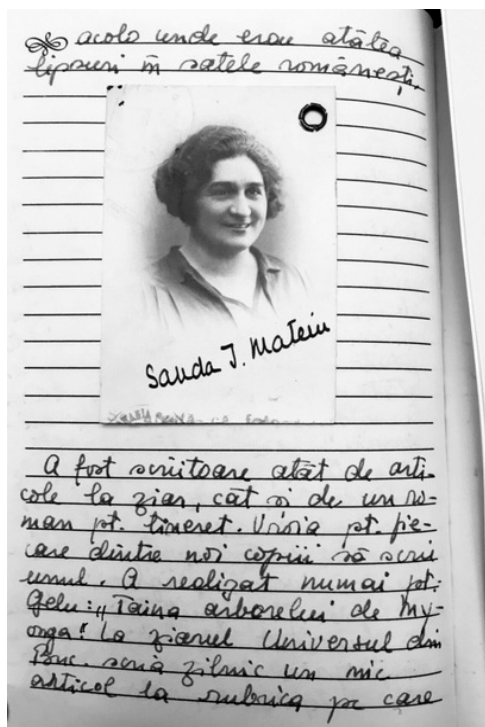 acolo unde erau atâtea
lipsuri în satele românești.
Sanda J. Mateiu
A fost scriitoare atât de arti-
cole la ziar, cât și de un ro-
man pt. tineret. Visia pt. fie-
care dintre noi copiii să scrie
unul. A realizat numai pt.
Gelu: „Taina arborelui de My-
orga." La ziarul Universul din
Buc. scria zilnic un mic
articol la rubrica pe care